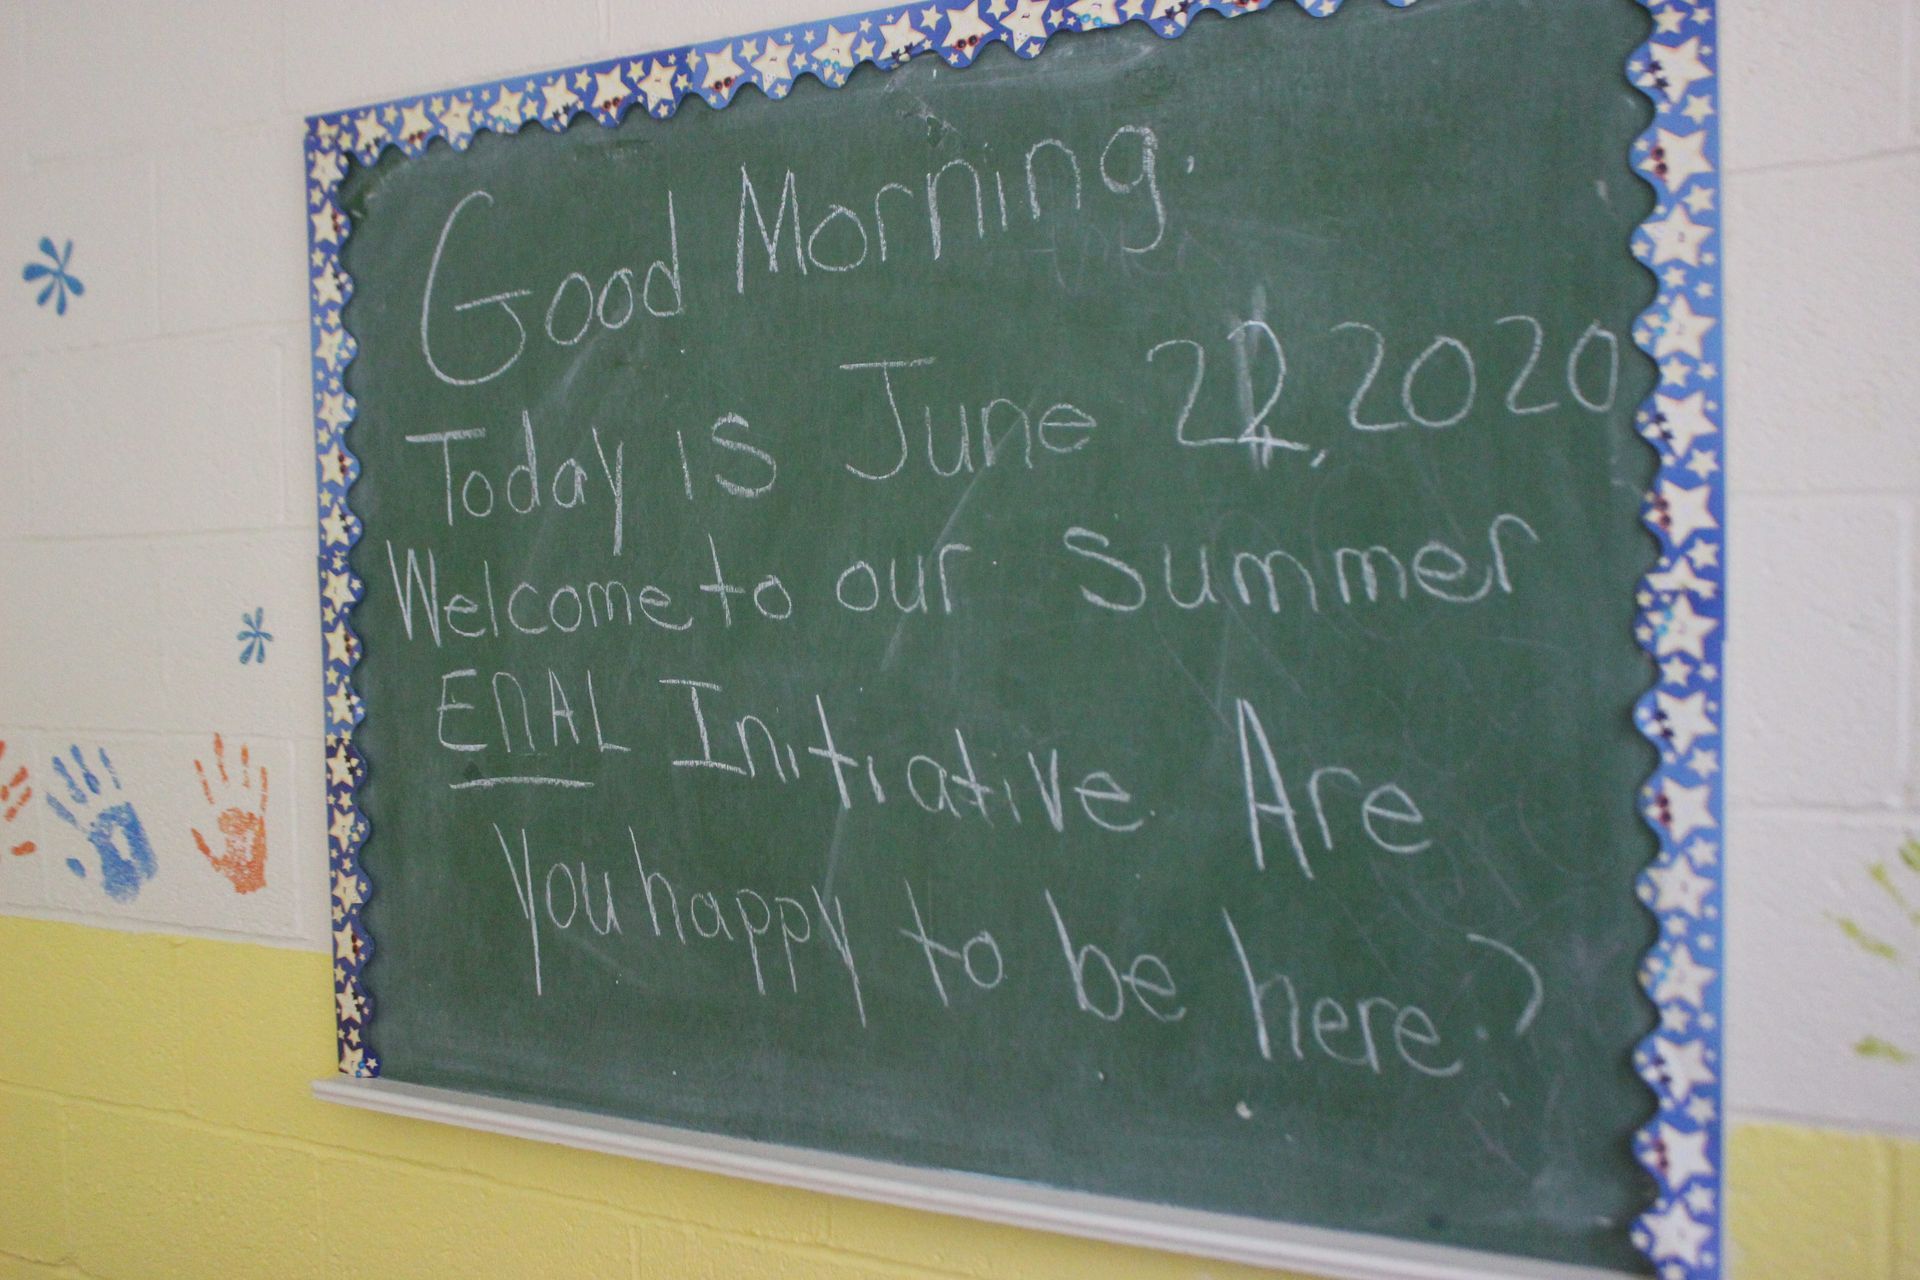 Good Morning.
Today is June 22, 2020
Welcome to our Summer
ENAL Initiative. Are
You happy to be here?